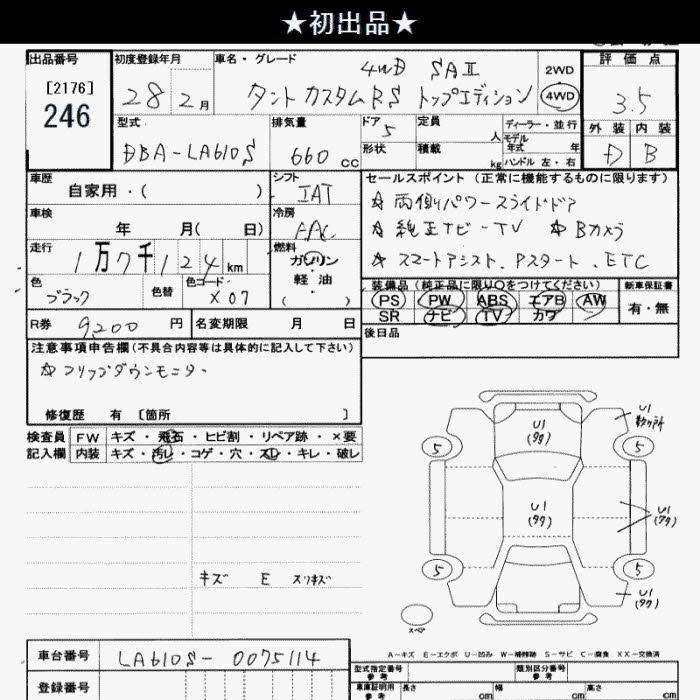 ★初出品★
出品番号 初度登録年月 車名・グレード 評価点
[2176]
246
28 2月
4WD SAⅡ
タント カスタムRS トップエディション
2WD
4WD
3.5
型式 排気量 ドア 定員 ディーラー・並行 外装 内装
DBA-LA610S 660 cc 5 人 モデル年式 年 D B
形状 積載 kg ハンドル 左・右
車歴 シフト セールスポイント (正常に機能するものに限ります)
自家用・( ) IAT
☆ 両側パワースライドドア
車検 冷房
年 月( 日) AAC
☆ 純正ナビ-TV ☆ Bカメラ
走行 燃料
1万7千124km ガソリン・軽油・( )
☆ スマートアシスト、Pスタート、ETC
色 色替 色コード
ブラック X07
装備品 (純正品に限り○をつけてください) 新車保証書
PS PW ABS エアB AW 有・無
SR ナビ TV カワ
R券 9,200円 名変期限 月 日
後日品
注意事項申告欄(不具合内容等は具体的に記入して下さい)
☆ フリップダウンモニター
修復歴 有 〔箇所 〕
検査員 FW キズ・飛石・ヒビ割・リペア跡・×要
記入欄 内装 キズ・汚レ・コゲ・穴・スレ・キレ・破レ
U1
(タク)
U1
5 5
U1
(タク)
U1
(タク)
キズ E スリキズ
5 5
U1
(タク)
スペア
A-キズ E-エクボ U-凹み W-補修跡 S-サビ C-腐食 XX-交換済
車台番号 LA610S-0075114
型式指定番号 参考 類別区分番号 参考
登録番号
車庫証明用 参考 長さ cm 幅 cm 高さ cm